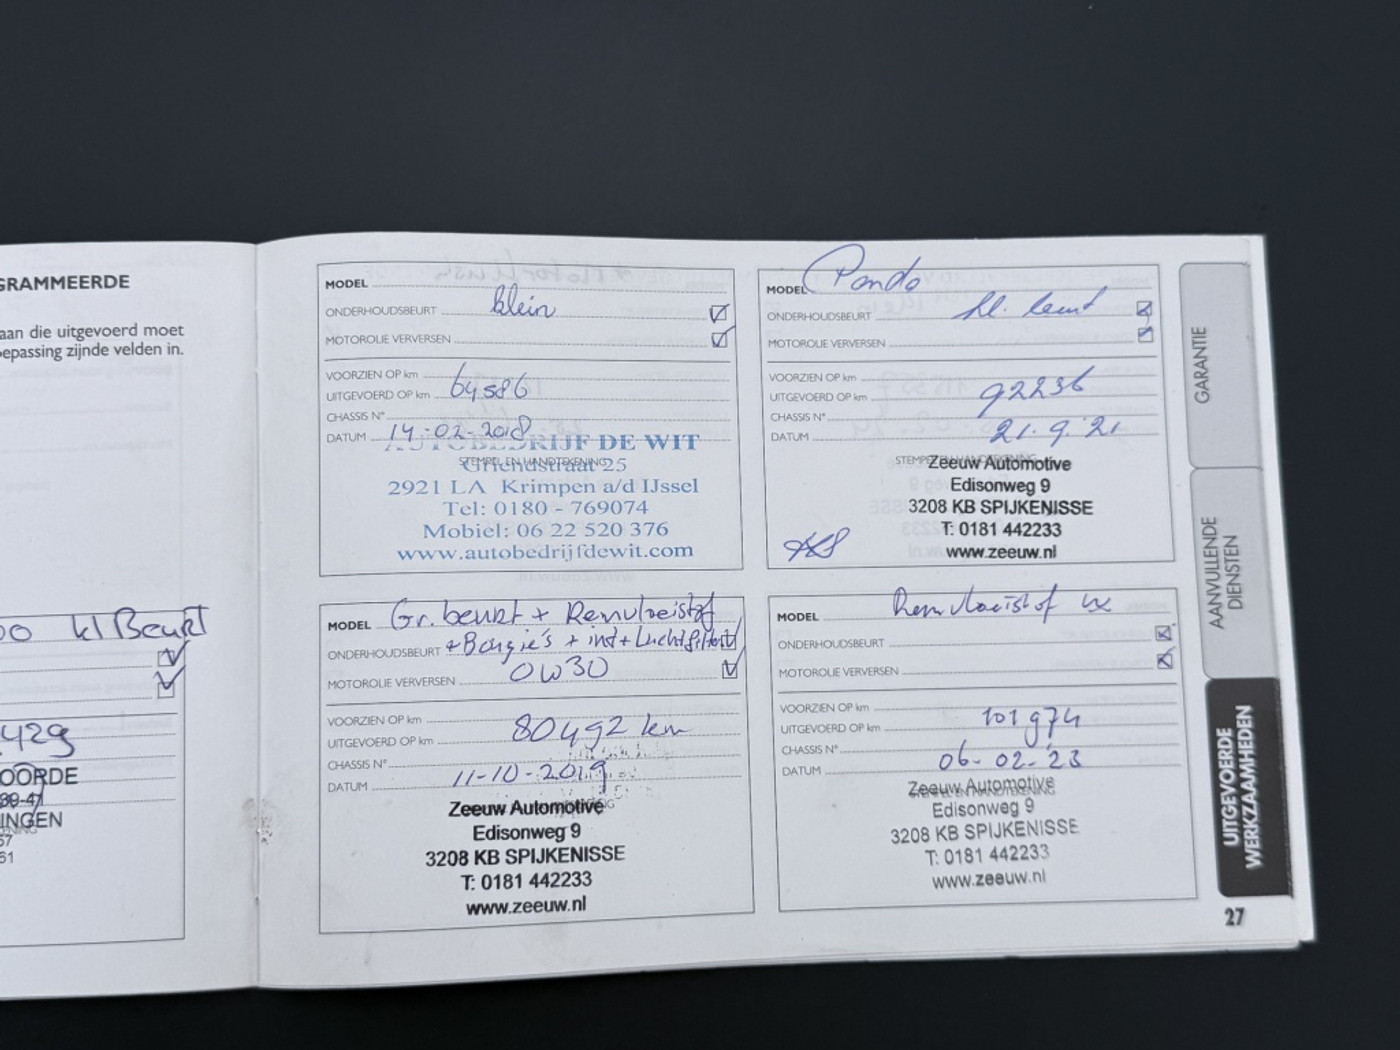 GRAMMEERDE
aan die uitgevoerd moet
epassing zijnde velden in.
00 kl Beurt
429
OORDE
39-41
INGEN
57
61
MODEL
ONDERHOUDSBEURT klein
MOTOROLIE VERVERSEN
VOORZIEN OP km
UITGEVOERD OP km 64586
CHASSIS N°
DATUM 14-02-2018
STEMPEL EN HANDTEKENING
AUTOBEDRIJF DE WIT
Griendstraat 25
2921 LA Krimpen a/d IJssel
Tel: 0180 - 769074
Mobiel: 06 22 520 376
www.autobedrijfdewit.com
MODEL Panda
ONDERHOUDSBEURT kl. beurt
MOTOROLIE VERVERSEN
VOORZIEN OP km
UITGEVOERD OP km 92236
CHASSIS N°
DATUM 21.9.'21
STEMPEL EN HANDTEKENING
Zeeuw Automotive
Edisonweg 9
3208 KB SPIJKENISSE
T: 0181 442233
www.zeeuw.nl
MODEL Gr. beurt + Remvloeistof
ONDERHOUDSBEURT + Bougie's + int + Luchtfilter
MOTOROLIE VERVERSEN 0W30
VOORZIEN OP km
UITGEVOERD OP km 80492 km
CHASSIS N°
DATUM 11-10-2019
Zeeuw Automotive
Edisonweg 9
3208 KB SPIJKENISSE
T: 0181 442233
www.zeeuw.nl
MODEL Remvloeistof vv
ONDERHOUDSBEURT
MOTOROLIE VERVERSEN
VOORZIEN OP km
UITGEVOERD OP km 101974
CHASSIS N°
DATUM 06-02-'23
STEMPEL EN HANDTEKENING
Zeeuw Automotive
Edisonweg 9
3208 KB SPIJKENISSE
T: 0181 442233
www.zeeuw.nl
GARANTIE
AANVULLENDE
DIENSTEN
UITGEVOERDE
WERKZAAMHEDEN
27